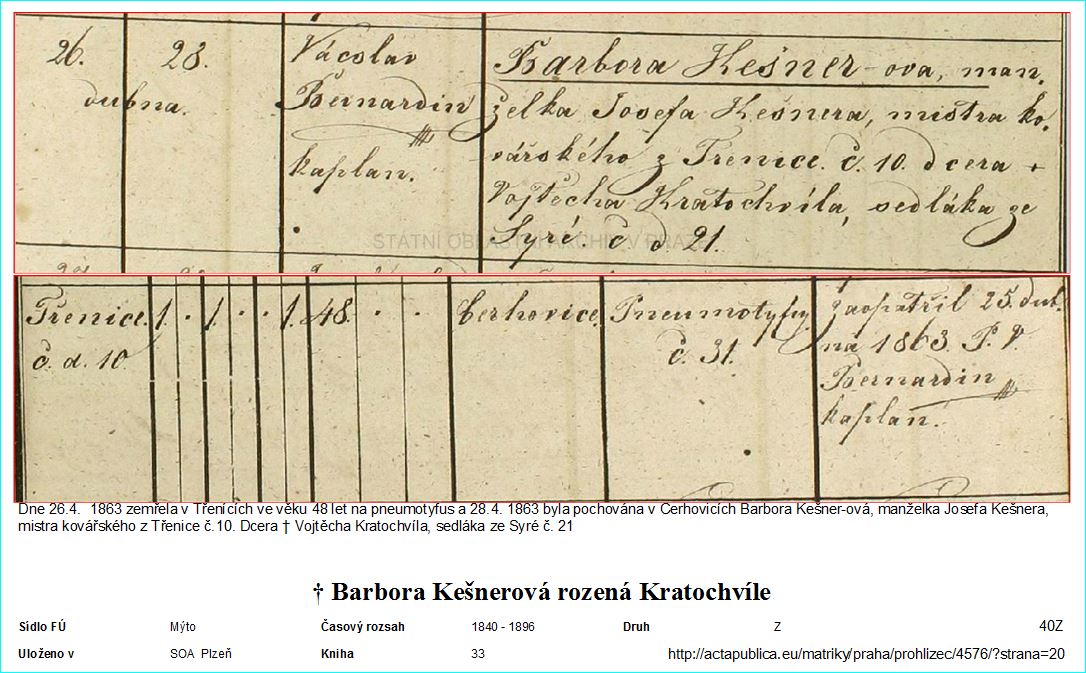 26.
28.
dubna.
Václav
Bernardin
kaplan.
Barbora Kešner-ova, man,
želka Josefa Kešnera, mistra ko,
vářského z Třenice. č. 10. dcera +
Vojtěcha Kratochvíla, sedláka ze
Syré. č d. 21.
STÁTNÍ OBLASTNÍ ARCHIV V PRAZE
Třenice. 1. · 1. · · 1. 48. · ·
č. d. 10.
Cerhovice.
Pneumotyfus
č. 31.
zaopatřil 25. dub,
na 1863. P. V.
Bernardin
kaplan.
Dne 26.4. 1863 zemřela v Třenících ve věku 48 let na pneumotyfus a 28.4. 1863 byla pochována v Cerhovicích Barbora Kešner-ová, manželka Josefa Kešnera,
mistra kovářského z Třenice č.10. Dcera † Vojtěcha Kratochvíla, sedláka ze Syré č. 21
† Barbora Kešnerová rozená Kratochvíle
Sídlo FÚ Mýto Časový rozsah 1840 - 1896 Druh Z 40Z
Uloženo v SOA Plzeň Kniha 33 http://actapublica.eu/matriky/praha/prohlizec/4576/?strana=20